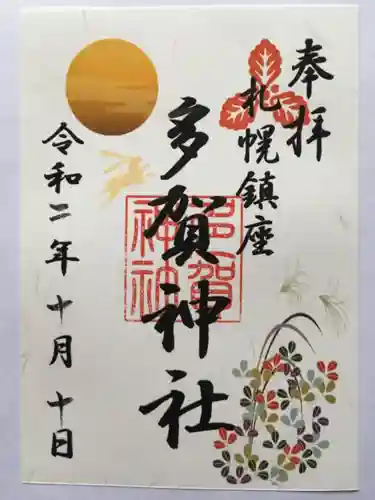 奉拝
札幌鎮座
多賀神社
多賀神社
令和二年十月十日